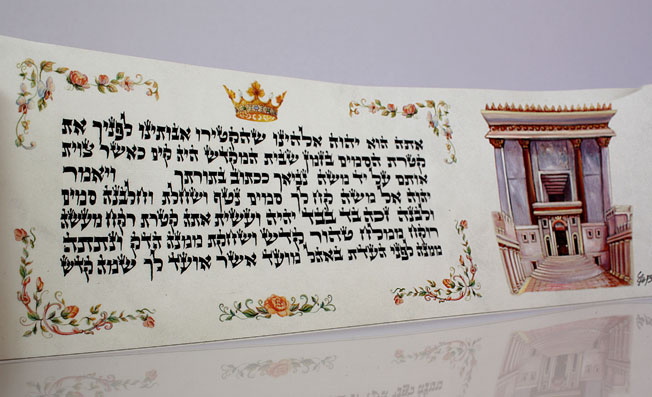 אתה הוא יהוה אלהינו שהקטירו אבותינו לפניך את
קטרת הסמים בזמן שבית המקדש היה קים כאשר צוית
אותם על יד משה נביאך ככתוב בתורתך ויאמר
יהוה אל משה קח לך סמים נטף ושחלת וחלבנה סמים
ולבנה זכה בד בבד יהיה ועשית אתה קטרת רקח מעשה
רוקח ממולח טהור קדש ושחקת ממנה הדק ונתתה
ממנה לפני העדת באהל מועד אשר אועד לך שמה קדש